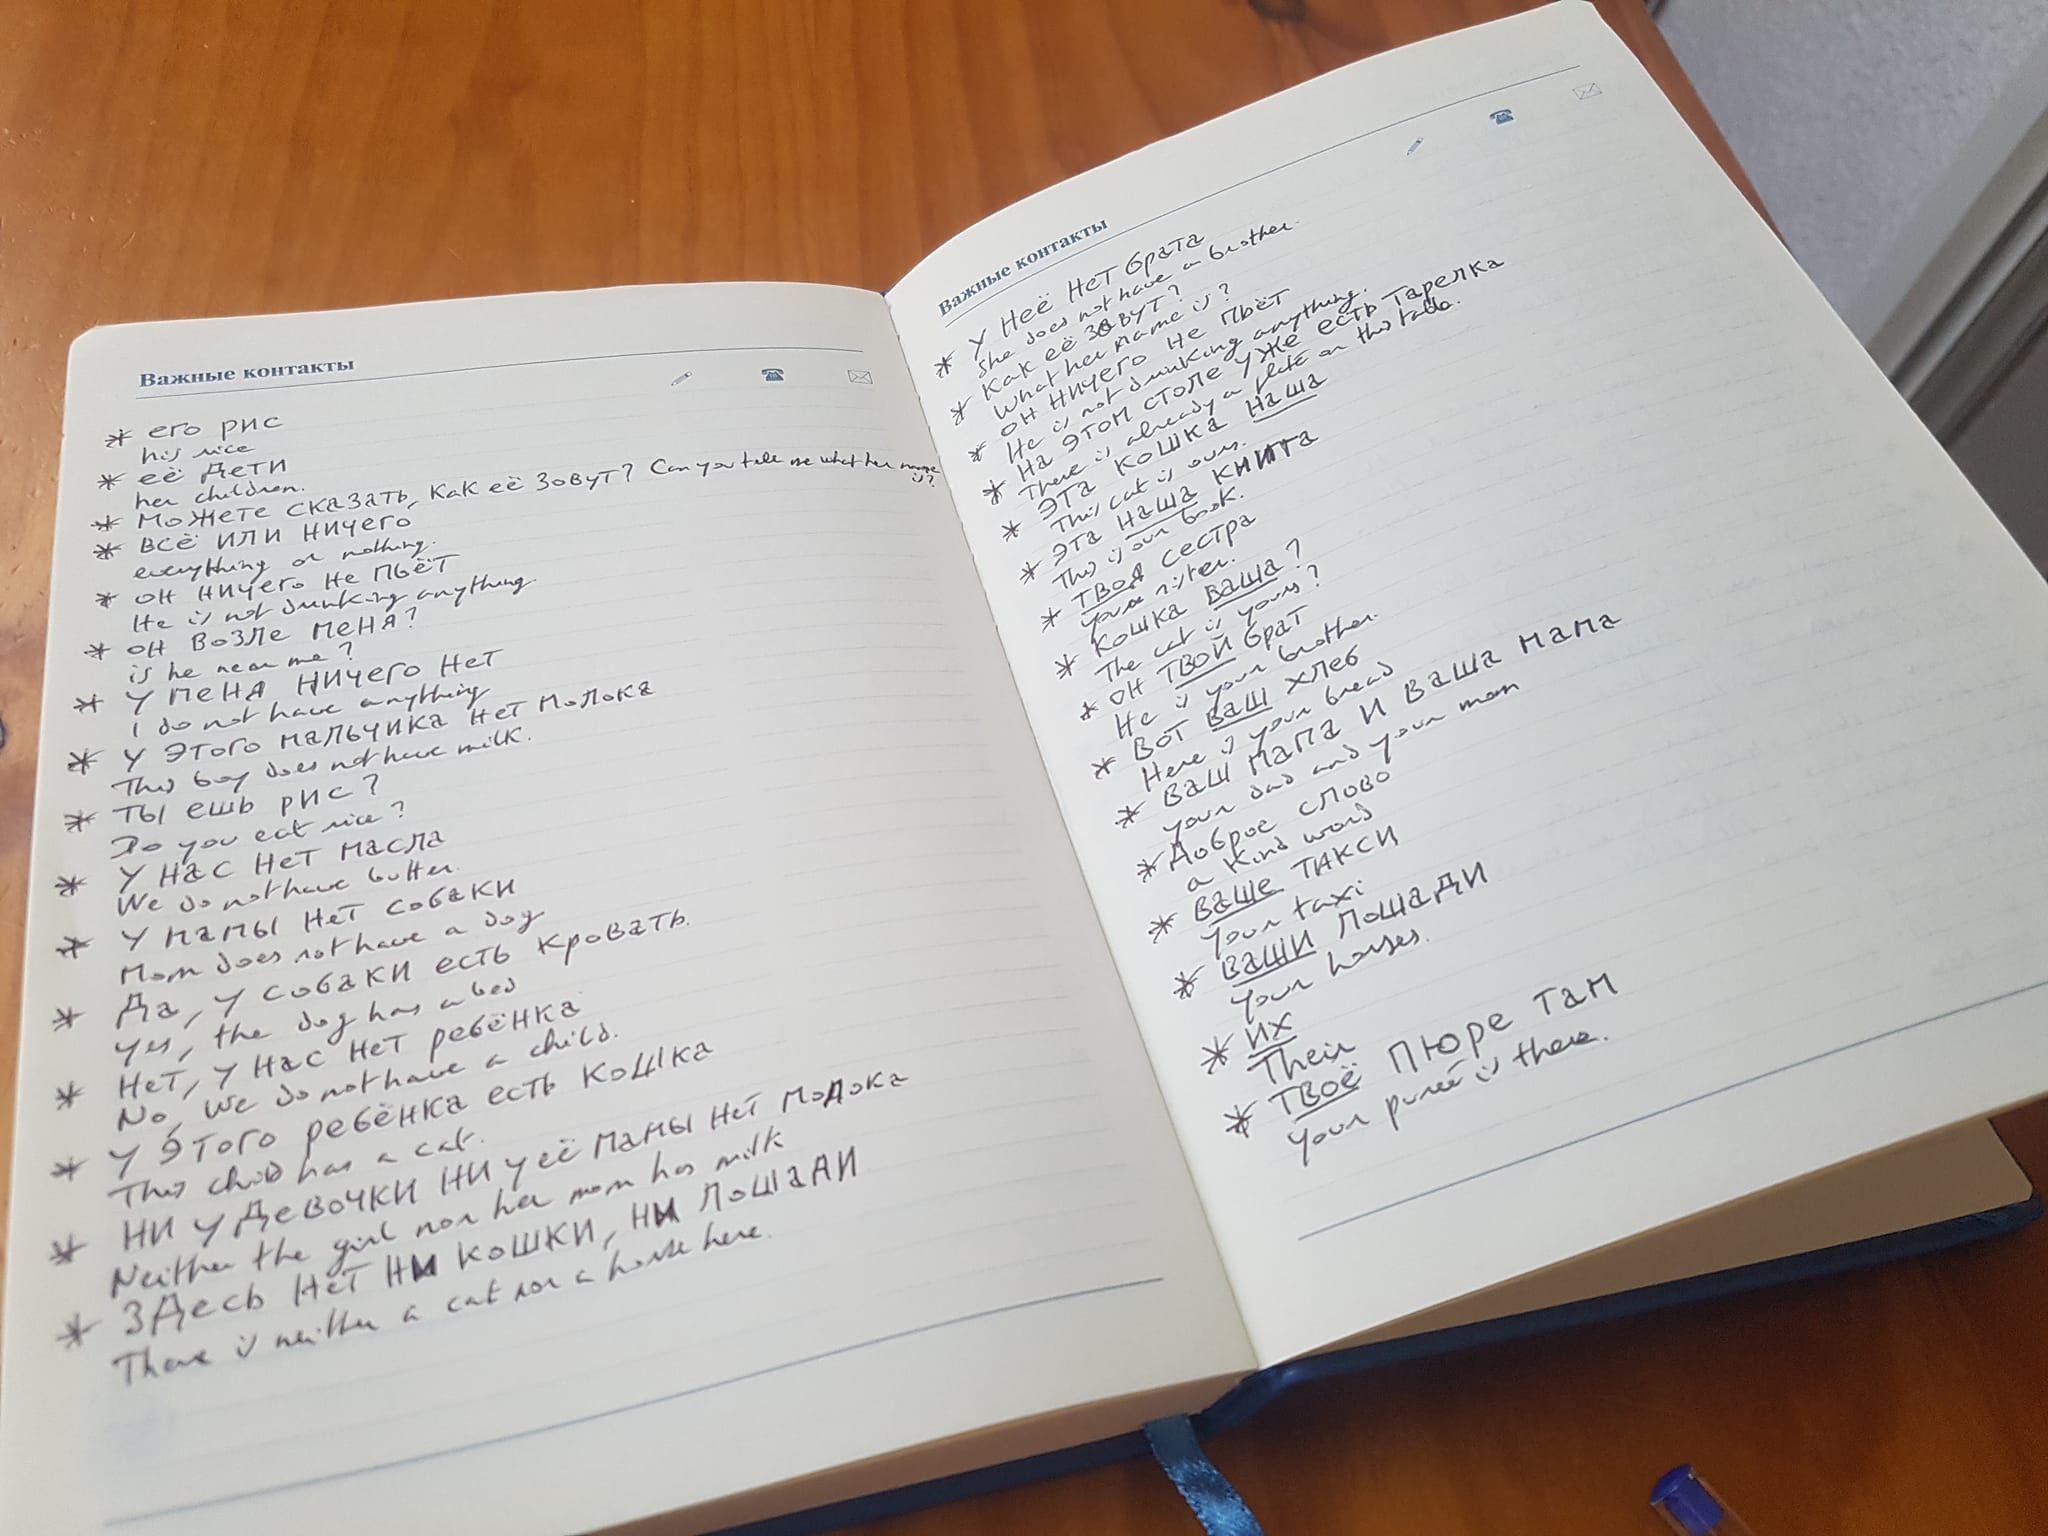 Важные контакты
* его рис
his rice
* её дети
her children.
* Можете сказать, как её зовут? Can you tell me what her name
is?
* всё или ничего
everything or nothing.
* он ничего не пьёт
He is not drinking anything.
* он возле меня?
is he near me?
* у меня ничего нет
I do not have anything
* у этого мальчика нет молока
This boy does not have milk.
* ты ешь рис?
Do you eat rice?
* у нас нет масла
We do not have butter.
* у мамы нет собаки
Mom does not have a dog
* Да, у собаки есть кровать.
yes, the dog has a bed
* Нет, у нас нет ребёнка
No, we do not have a child.
* у этого ребёнка есть кошка
This child has a cat.
* Ни у девочки ни у её мамы нет молока
Neither the girl nor her mom has milk
* Здесь нет ни кошки, ни лошади
There is neither a cat nor a horse here.
Важные контакты
* у неё нет брата
She does not have a brother.
* Как её зовут?
What her name is?
* он ничего не пьёт
He is not drinking anything.
* На этом столе уже есть тарелка
There is already a plate on this table.
* Эта кошка наша
This cat is ours.
* Эта наша книга
This is our book.
* Твоя сестра
your sister.
* кошка ваша?
The cat is yours?
* он твой брат
He is your brother.
* Вот ваш хлеб
Here is your bread
* Ваш папа и ваша мама
your dad and your mom
* Доброе слово
a kind word
* Ваше такси
your taxi
* Ваши лошади
your horses.
* их
Their
* твоё пюре там
your pureé is there.